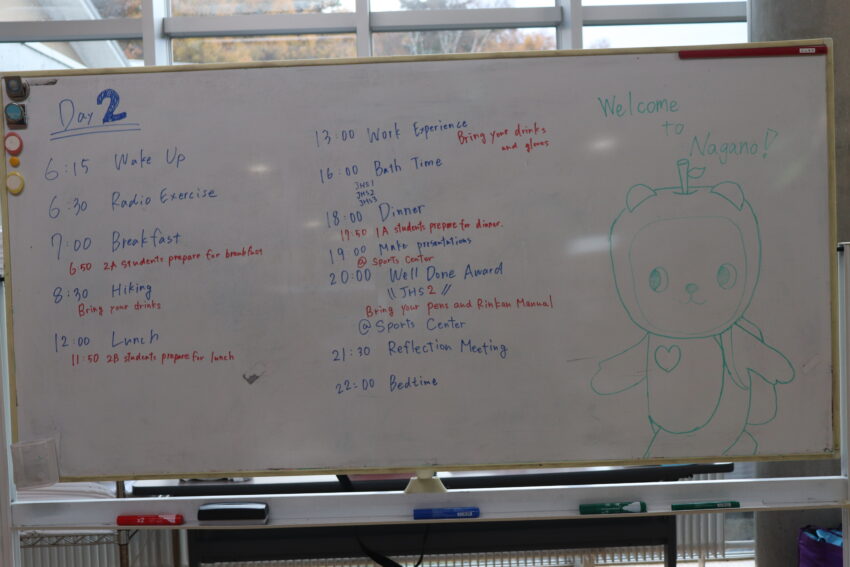 Day 2
6:15 Wake Up
6:30 Radio Exercise
7:00 Breakfast
6:50 2A students prepare for breakfast
8:30 Hiking
Bring your drinks
12:00 Lunch
11:50 2B students prepare for lunch
13:00 Work Experience
Bring your drinks
and gloves
16:00 Bath Time
JHS1
JHS2
JHS3
18:00 Dinner
17:50 1A students prepare for dinner.
19:00 Make presentations
@ Sports Center
20:00 Well Done Award
\\ JHS2 //
Bring your pens and Rinkan Manual
@ Sports Center
21:30 Reflection Meeting
22:00 Bedtime
Welcome
to
Nagano!